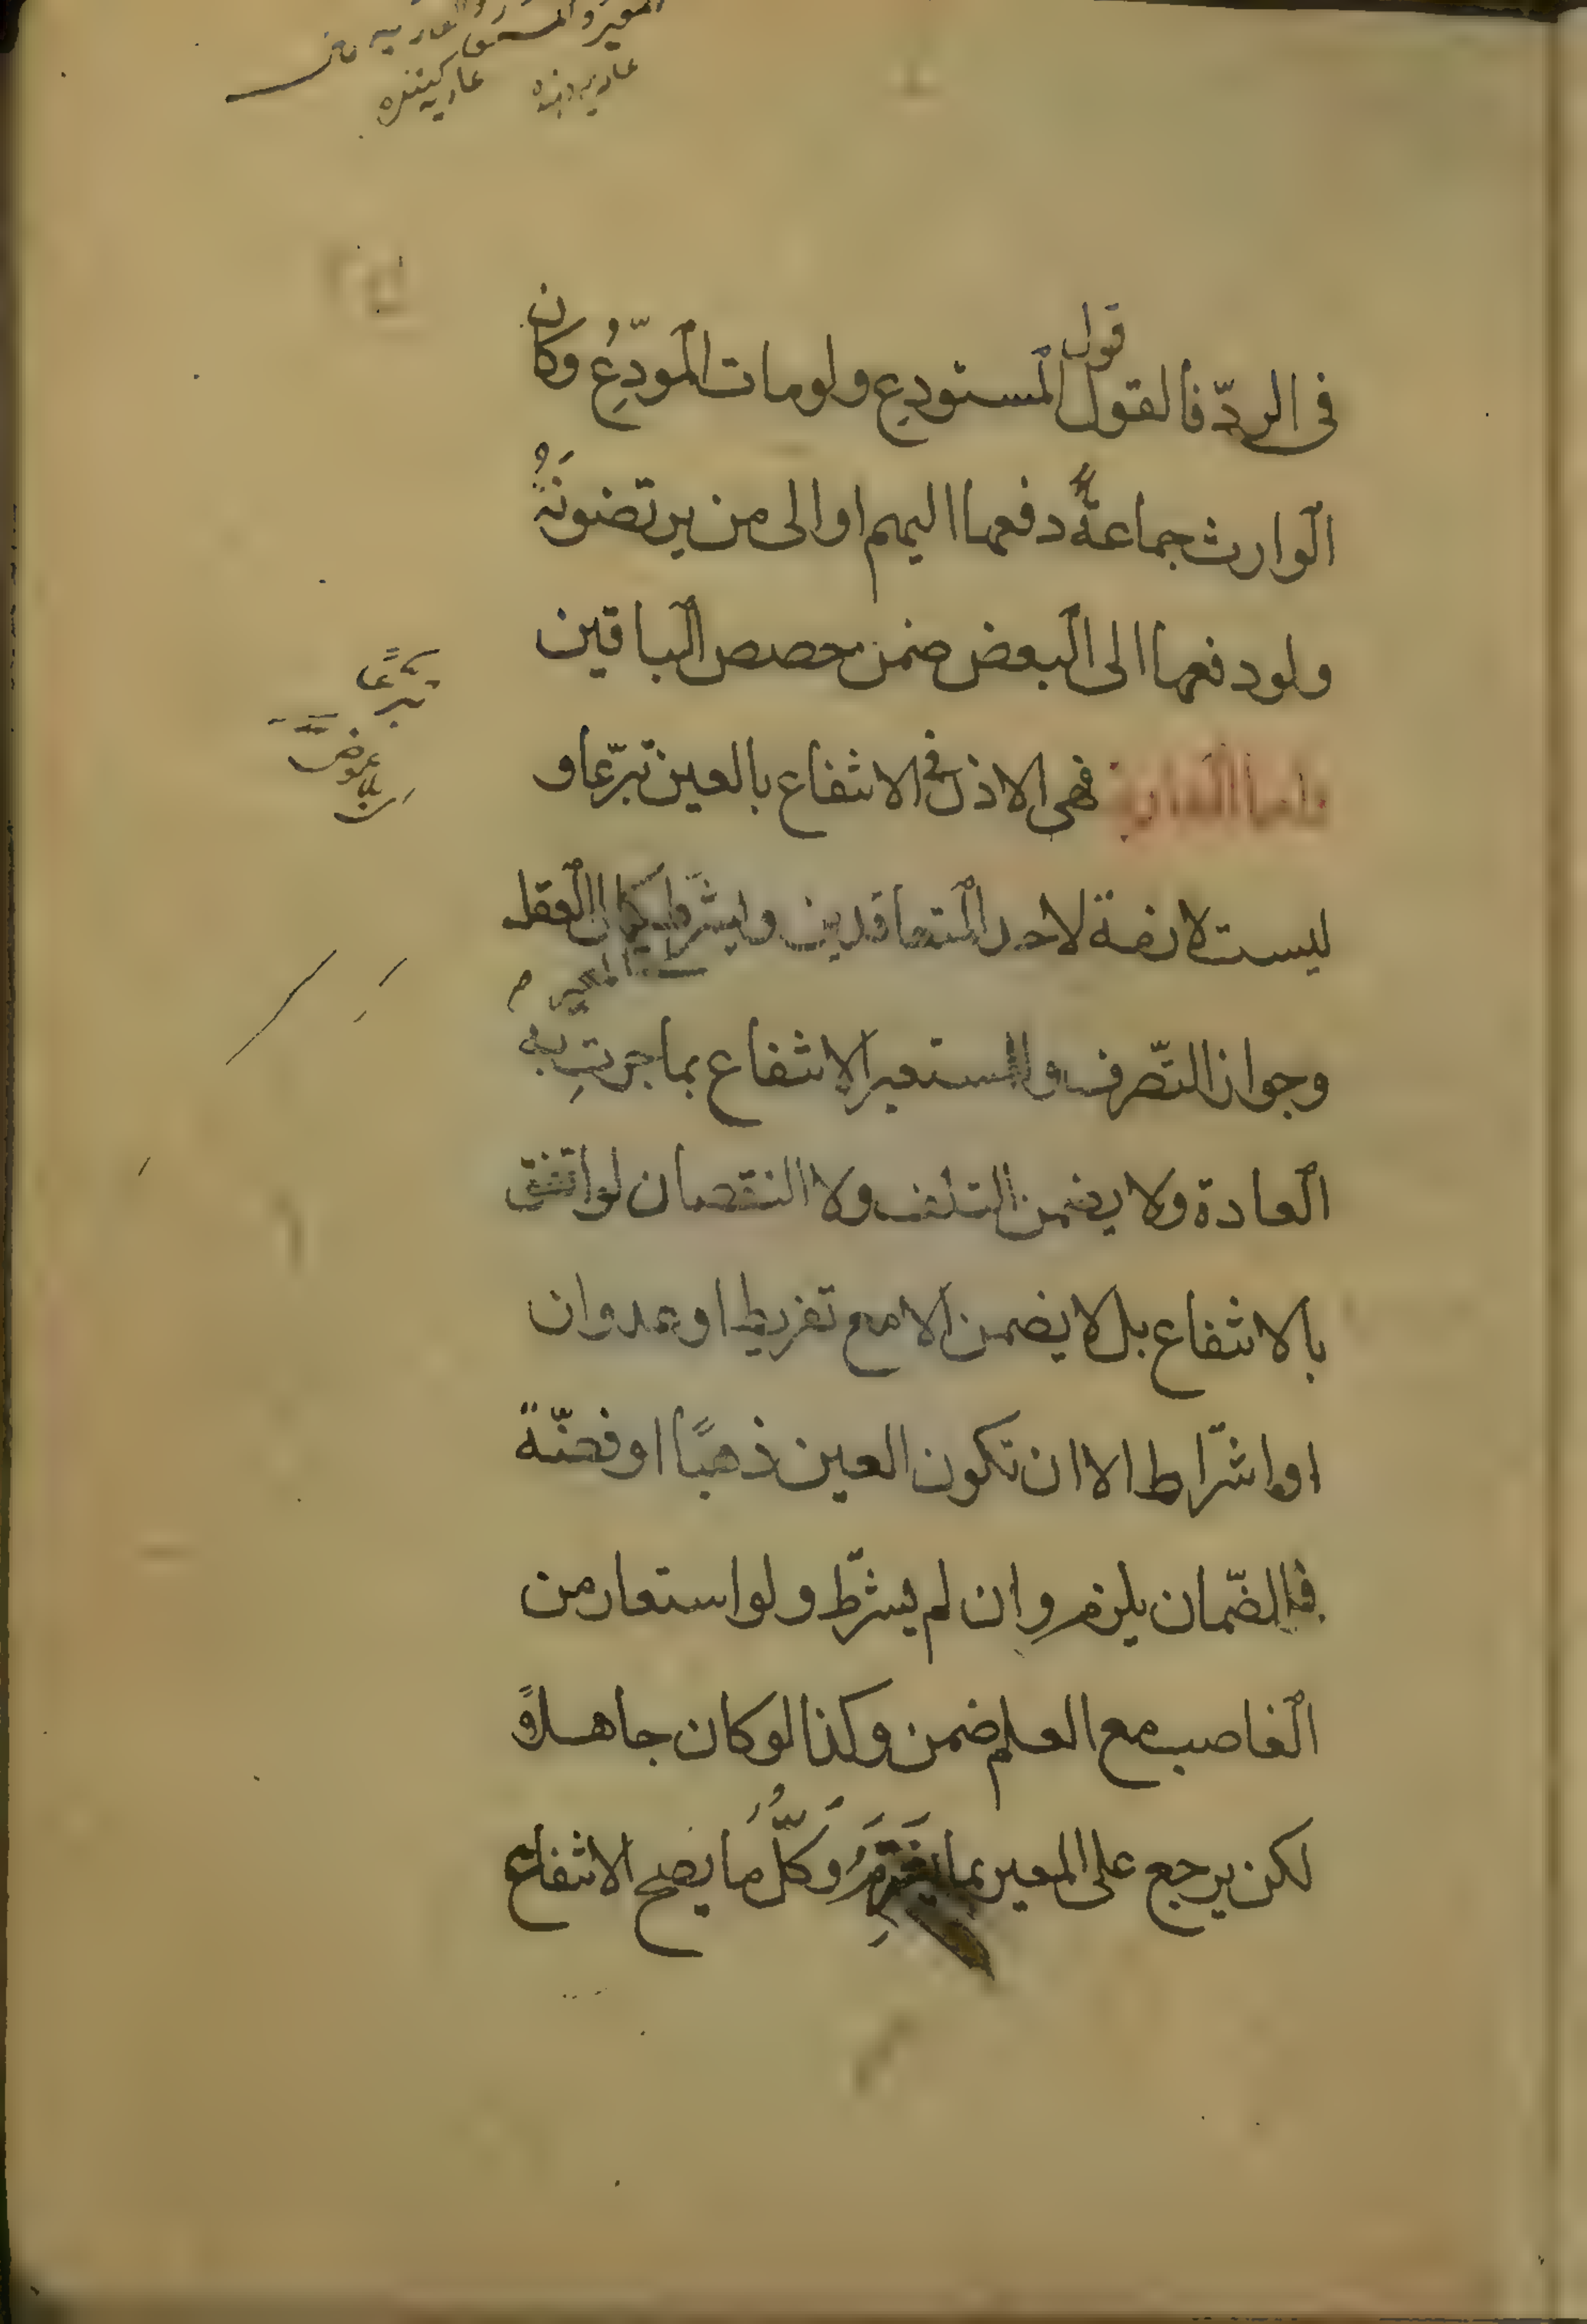 المعير والمستعير
عاريه دهنده عاريه كننده
فى الردّ فالقول قول المستودع ولو مات المودّعُ وكان
الوارث جماعةً دفعها اليهم او الى من يرتضونَهُ
ولو دفعها الى البعض ضمن حصص الباقين
تبرّعًا
بلا عوض
واما العارية فهى الاذن فى الانتفاع بالعين تبرّعا و
ليست لازمة لاحد المتعاقدين ويشترط كمال العقل
المعير
وجواز التصّرف وللمستعير الانتفاع بما جرتِ به
العادة ولا يضمن التلف ولا النقصان لو اتفق
بالانتفاع بل لا يضمن الا مع تفريط او عدوان
او اشتراط الا ان تكون العين ذهبًا او فضّةً
فالضّمان يلزم وان لم يشترط ولو استعار من
الغاصب مع العلم ضمن وكذا لو كان جاهلاً
لكن يرجع على المعير بما يغترمُ وكلُّ ما يصح الانتفاع